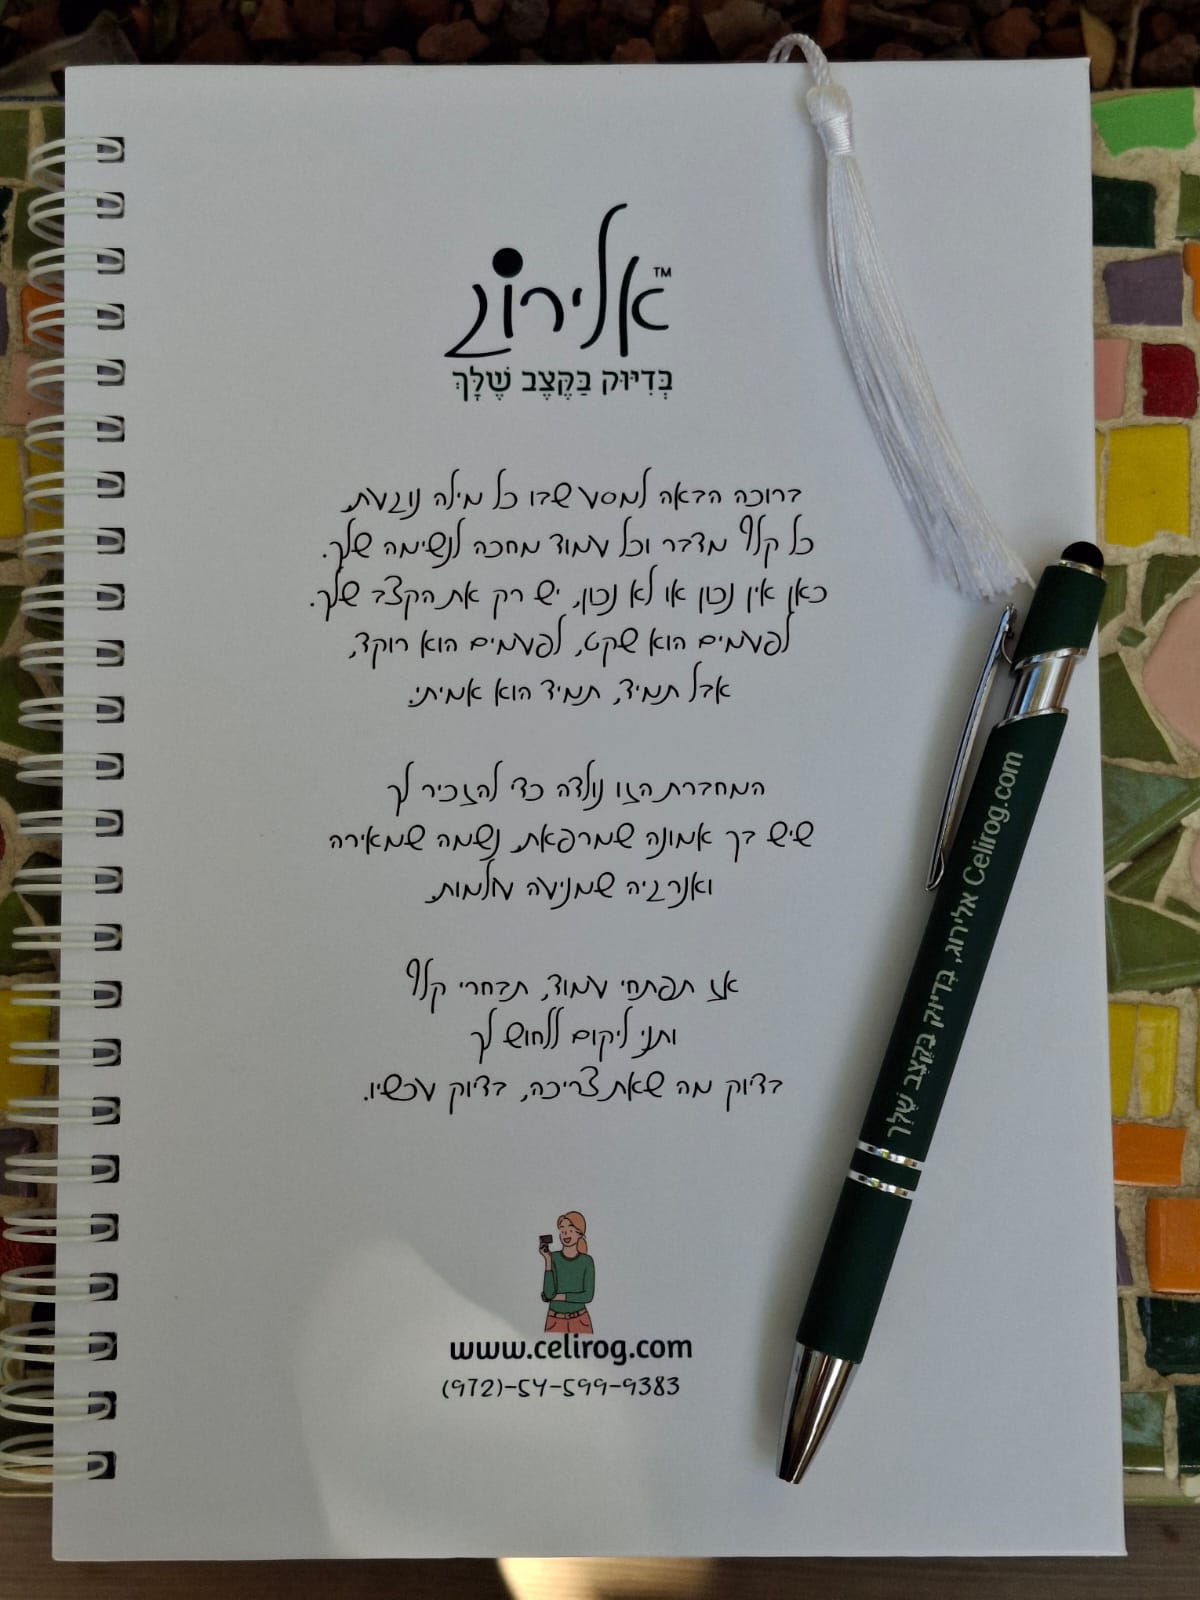 אלירוג™
בְּדִיּוּק בַּקֶּצֶב שֶׁלָּךְ
ברוכה הבאה למסע שבו כל מילה נוגעת.
כל קלף מדבר וכל עמוד מחכה לנשימה שלך.
כאן אין נכון או לא נכון, יש רק את הקצב שלך.
לפעמים הוא שקט, לפעמים הוא רוקד,
אבל תמיד, תמיד הוא אמיתי.
המחברת הזו נולדה כדי להזכיר לך
שיש בך אמונה שמרפאת, נשמה שמאירה
ואנרגיה שמניעה עולמות.
אז תפתחי עמוד, תבחרי קלף
ותני ליקום ללחוש לך
בדיוק מה שאת צריכה, בדיוק עכשיו.
www.celirog.com
(972)-54-599-9383
אלירוג, בְּדִיוּק בַּקֶּצֶב שֶׁלָּךְ Celirog.com